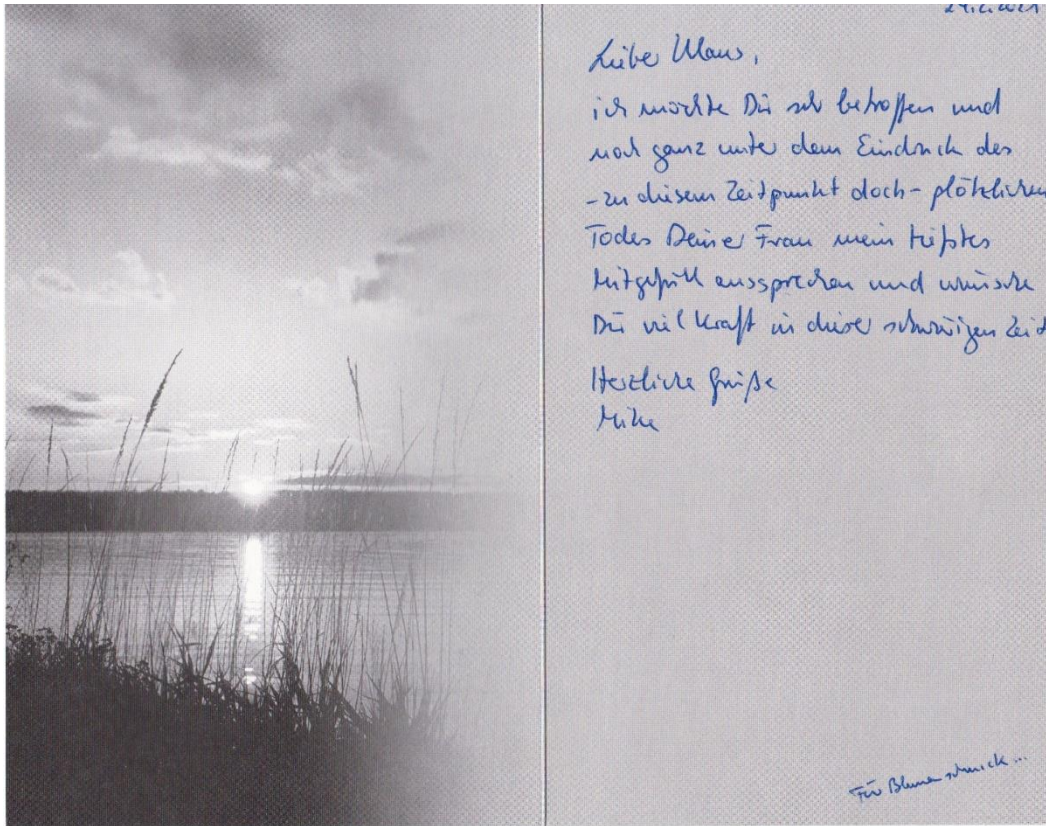 Lieber Klaus,
ich möchte Dir sehr betroffen und
noch ganz unter dem Eindruck des
-zu diesem Zeitpunkt doch- plötzlichen
Todes Deiner Frau mein tiefstes
Mitgefühl aussprechen und wünsche
Dir viel Kraft in dieser schwierigen Zeit
Herzliche Grüße
Mike
Für Blumenschmuck...